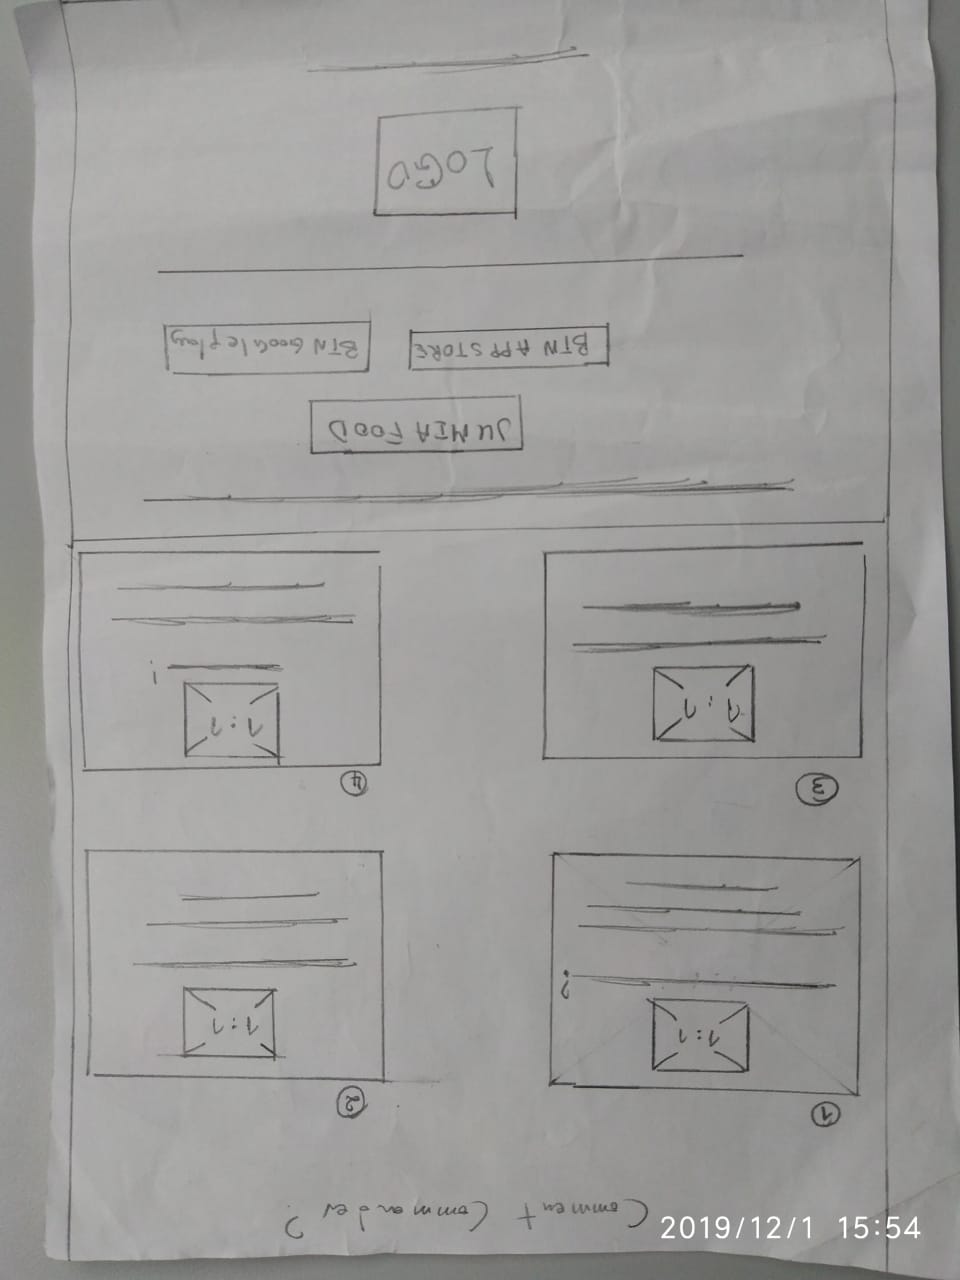 2019/12/1 15:54
Comment Commander ?
1
2
1:1
1:1
?
3
4
1:1
1:1
!
JUMIA FOOD
BTN APP STORE
BTN Google play
LOGO